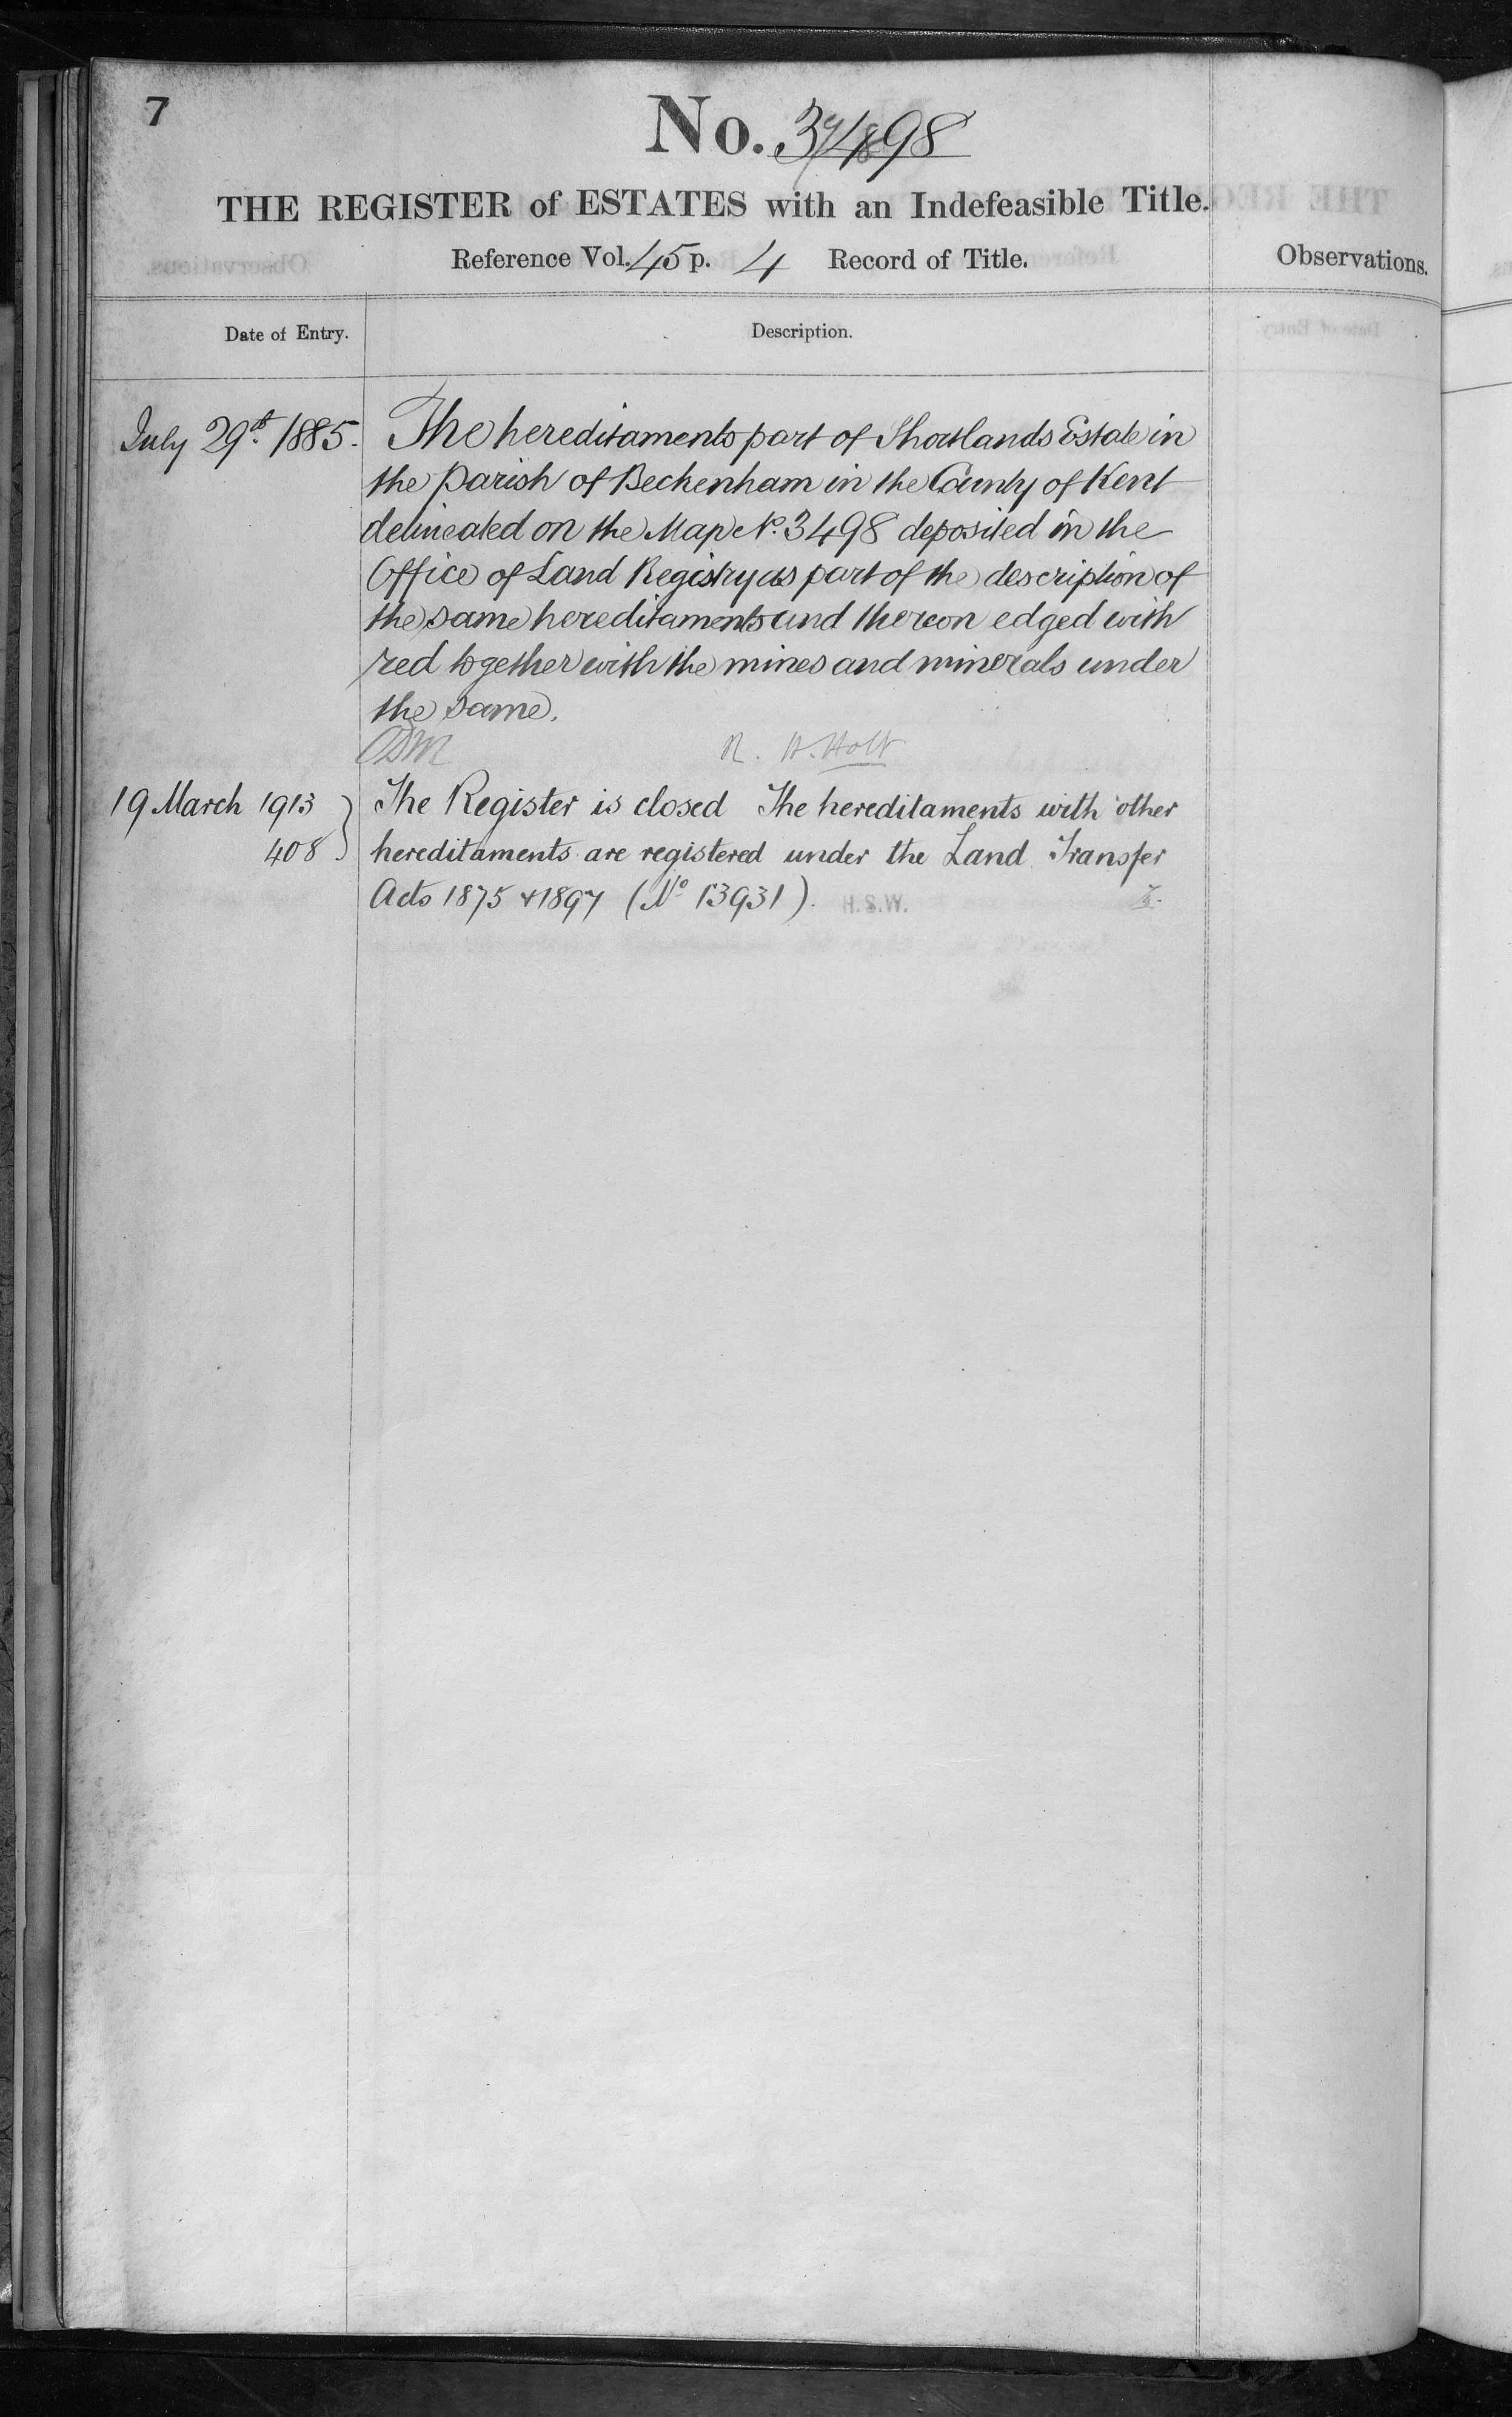 7
No. 3498
THE REGISTER of ESTATES with an Indefeasible Title.
Reference Vol. 45 p. 4 Record of Title.
Observations.
Date of Entry.
Description.
July 29th 1885. The hereditaments part of Shortlands Estate in
the Parish of Beckenham in the County of Kent
delineated on the Map No. 3498 deposited in the
Office of Land Registry as part of the description of
the same hereditaments and thereon edged with
red together with the mines and minerals under
the same.
R. H. Holt
19 March 1913 The Register is closed The hereditaments with other
408 hereditaments are registered under the Land Transfer
Acts 1875 & 1897 (No 13931). H.S.W.